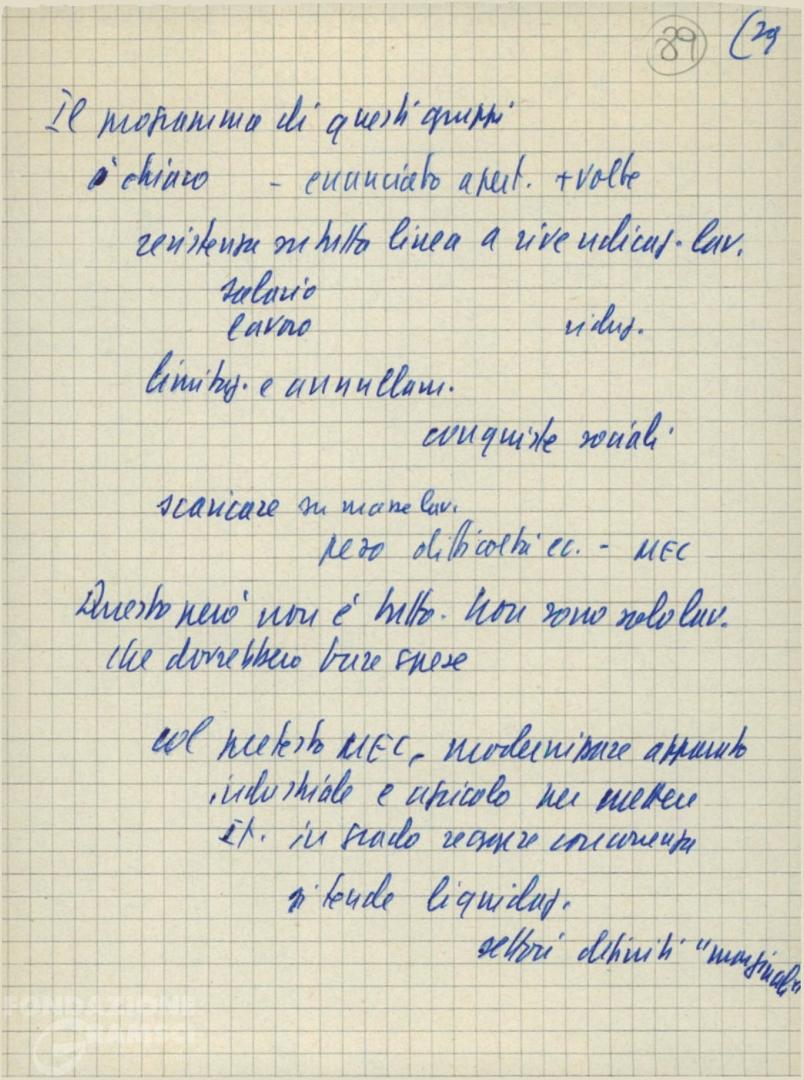 89 (29
Il programma di questi gruppi
è chiaro - enunciato apert. + volte
resistenza su tutta linea a rivendicaz. lav.
salario
lavoro riduz.
limitaz. e annullam.
conquiste sociali
scaricare su masse lav.
peso difficoltà ec. - MEC
Questo però non è tutto. Non sono solo lav.
che dovrebbero fare spese
col pretesto MEC, modernizzare apparato
industriale e agricolo per mettere
It. in grado reggere concorrenza
si tende liquidaz.
settori definiti "marginali"
FONDAZIONE
GRAMSCI